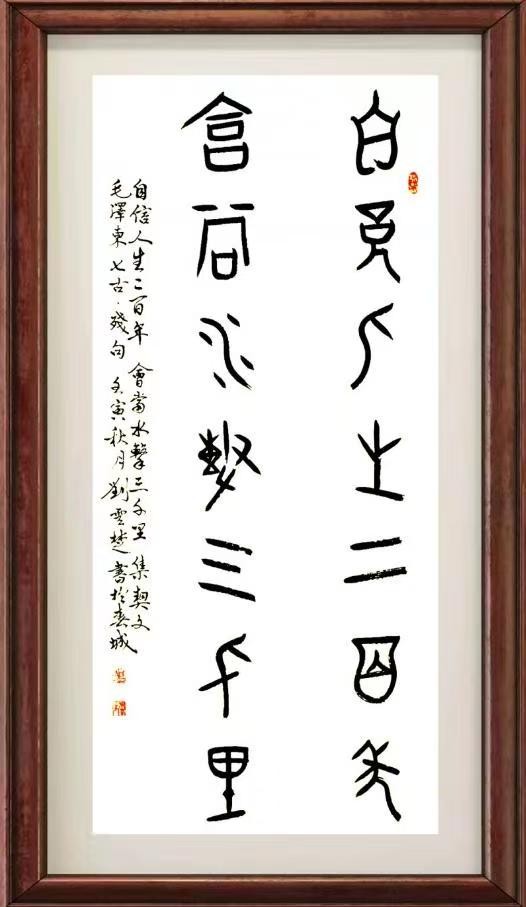 自信人生二百年
會當水擊三千里
自信人生二百年 會當水擊三千里 集契文
毛澤東七古·殘句 壬寅秋月劉雲楚書於春城